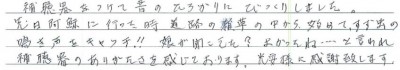 補聴器をつけて音のひろがりに びっくりしました。
先日阿蘇に行った時 道路の雑草の中から 始めて、すず虫の
鳴き声をキャッチ!! 娘が聞こえた? よかったね…と言われ
補聴器のありがたさを感じております。 先生様に感謝致します。